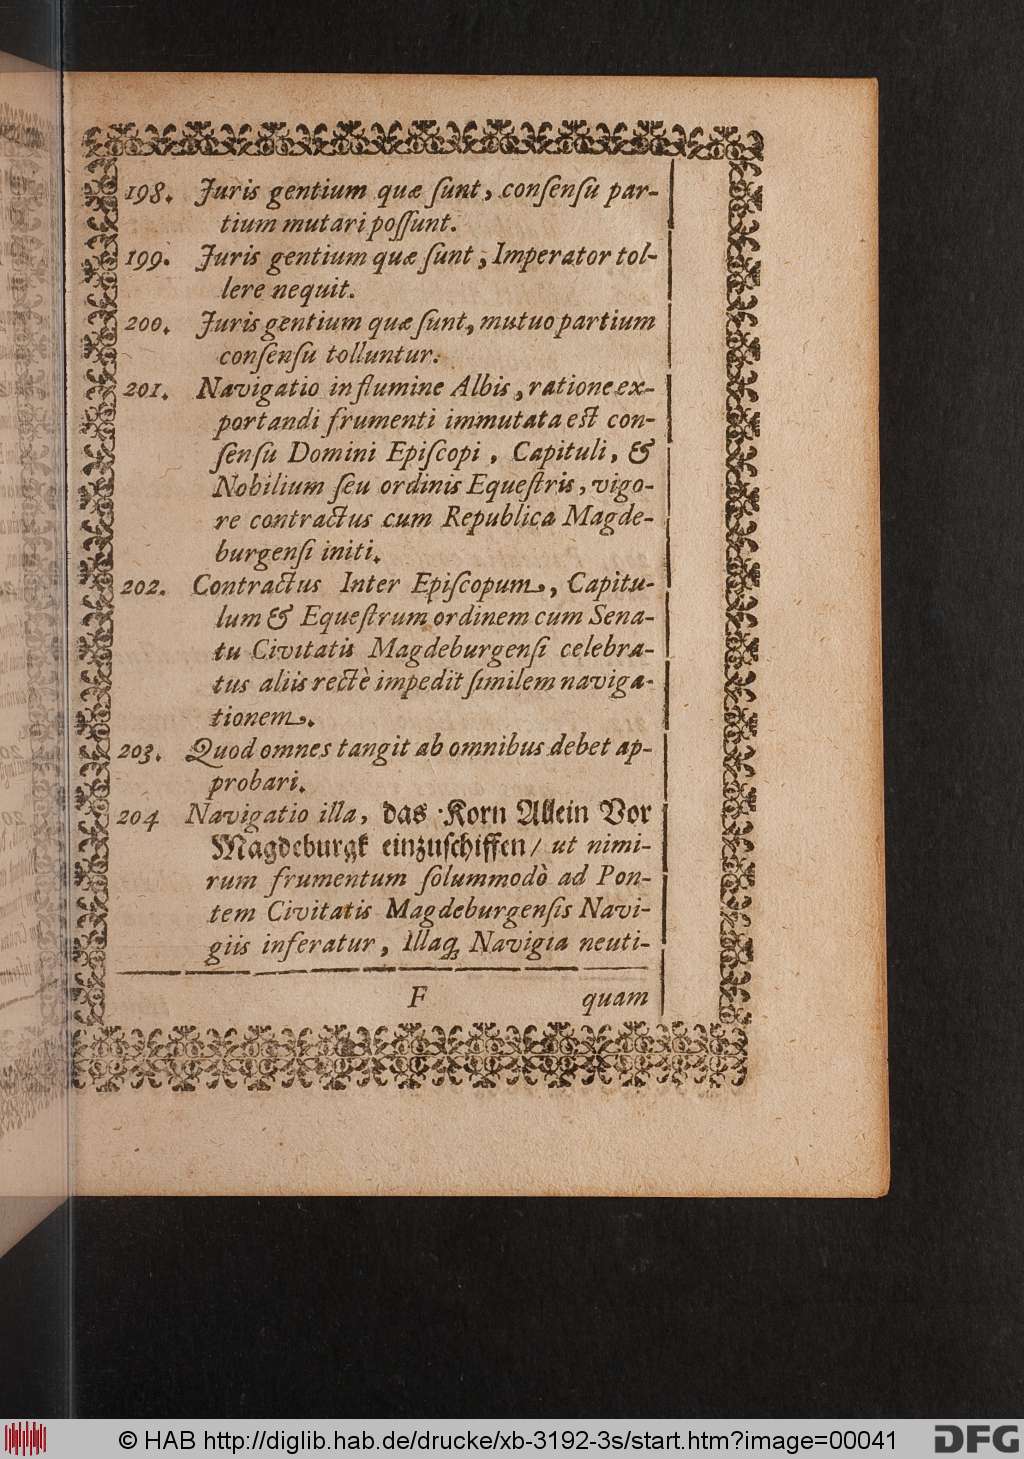 198. Juris gentium quæ ſunt, conſenſu par-
tium mutari poſſunt.
199. Juris gentium quæ ſunt, Imperator tol-
lere nequit.
200. Juris gentium quæ ſunt, mutuo partium
conſenſu tolluntur.
201. Navigatio in flumine Albis, ratione ex-
portandi frumenti immutata eſt con-
ſenſu Domini Epiſcopi, Capituli, &
Nobilium ſeu ordinis Equeſtris, vigo-
re contractus cum Republica Magde-
burgenſi initi.
202. Contractus Inter Epiſcopum, Capitu-
lum & Equeſtrum ordinem cum Sena-
tu Civitatis Magdeburgenſi celebra-
tus aliis rectè impedit ſimilem naviga-
tionem.
203. Quod omnes tangit ab omnibus debet ap-
probari.
204 Navigatio illa, das Korn Allein Vor
Magdeburgk einzuſchiffen / ut nimi-
rum frumentum ſolummodò ad Pon-
tem Civitatis Magdeburgenſis Navi-
giis inferatur, Illaq́; Navigia neuti-
F quam
© HAB http://diglib.hab.de/drucke/xb-3192-3s/start.htm?image=00041
DFG